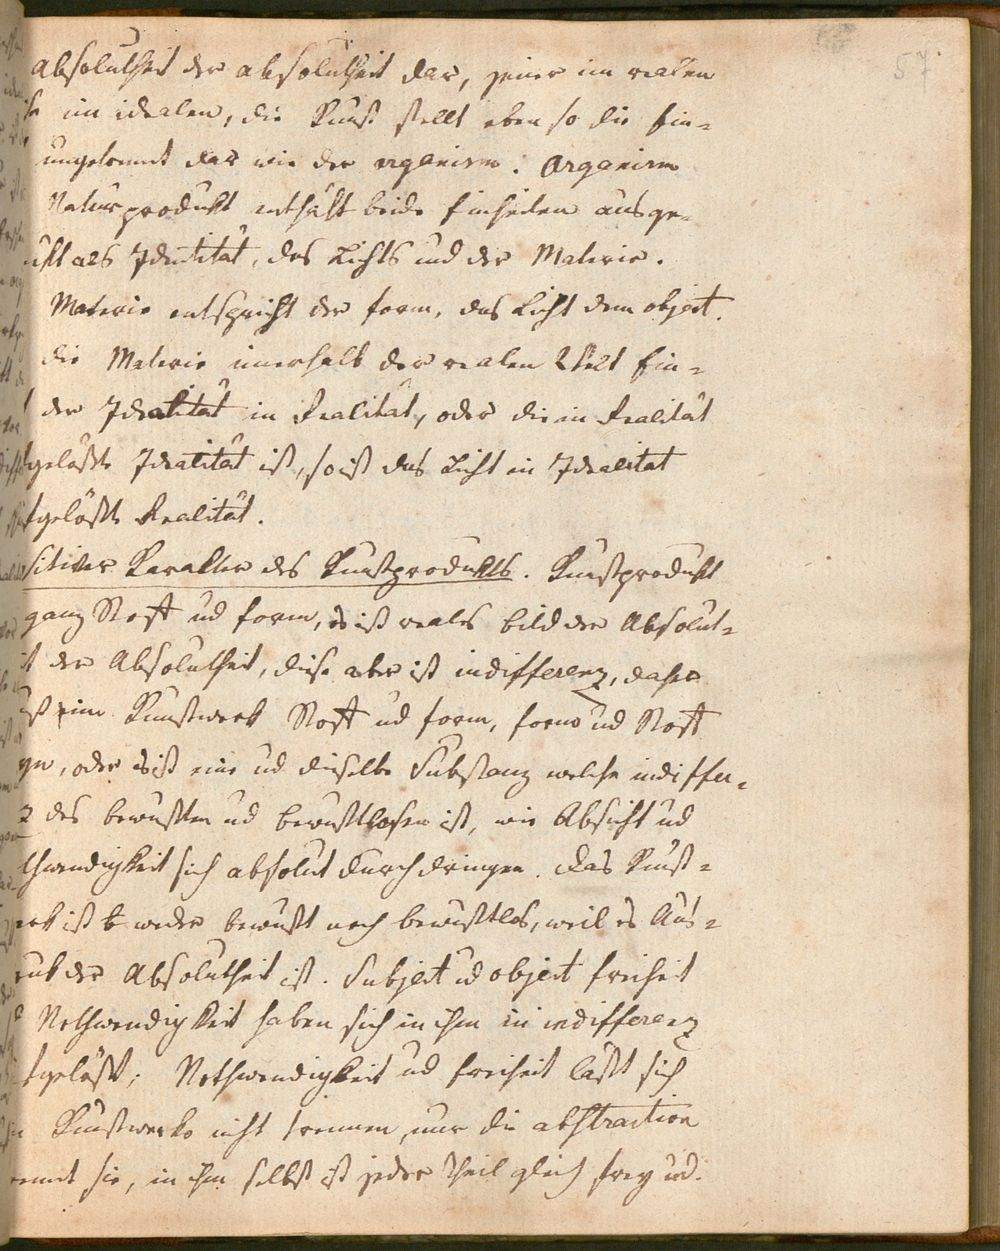 57
absolutheit der absolutheit dar, jener im realen
im idealen, die Kunst stellt eben so die Ein-
ungetrennt dar wie der organism. Organism
Naturprodukt enthält beide Einheiten ausge-
als Identität, des Lichts und der Materie.
Materie entspricht der form, das Licht dem object.
die Materie innerhalb der realen Welt Ein-
der Idealität in Realität, oder die in Realität
gelößte Idealität ist, so ist das Licht in Idealität
fgelößte Realität.
sitiver Karakter des Kunstprodukts. Kunstprodukt
ganz Stoff und form, es ist reales bild der Absolut-
it der Absolutheit, diese aber ist indifferenz, daher
ist eim Kunstwerk Stoff ud form, form ud Stoff
yn, oder es ist eine ud dieselbe Substanz welche indiffer-
z des bewusten ud bewustlosen ist, wie Absicht ud
thwendigkeit sich absolut durchdringen. Das Kunst-
erk ist weder bewust noch bewustlos, weil es Aus-
ruk der Absolutheit ist. Subject ud object freiheit
Nothwendigkeit haben sich in ihm in indifferenz
fgelößt; Nothwendigkeit ud freiheit läßt sich
Kunstwerke nicht trennen, nur die abstraction
ennt sie, in ihm selbst ist jeder Theil gleich frey ud.